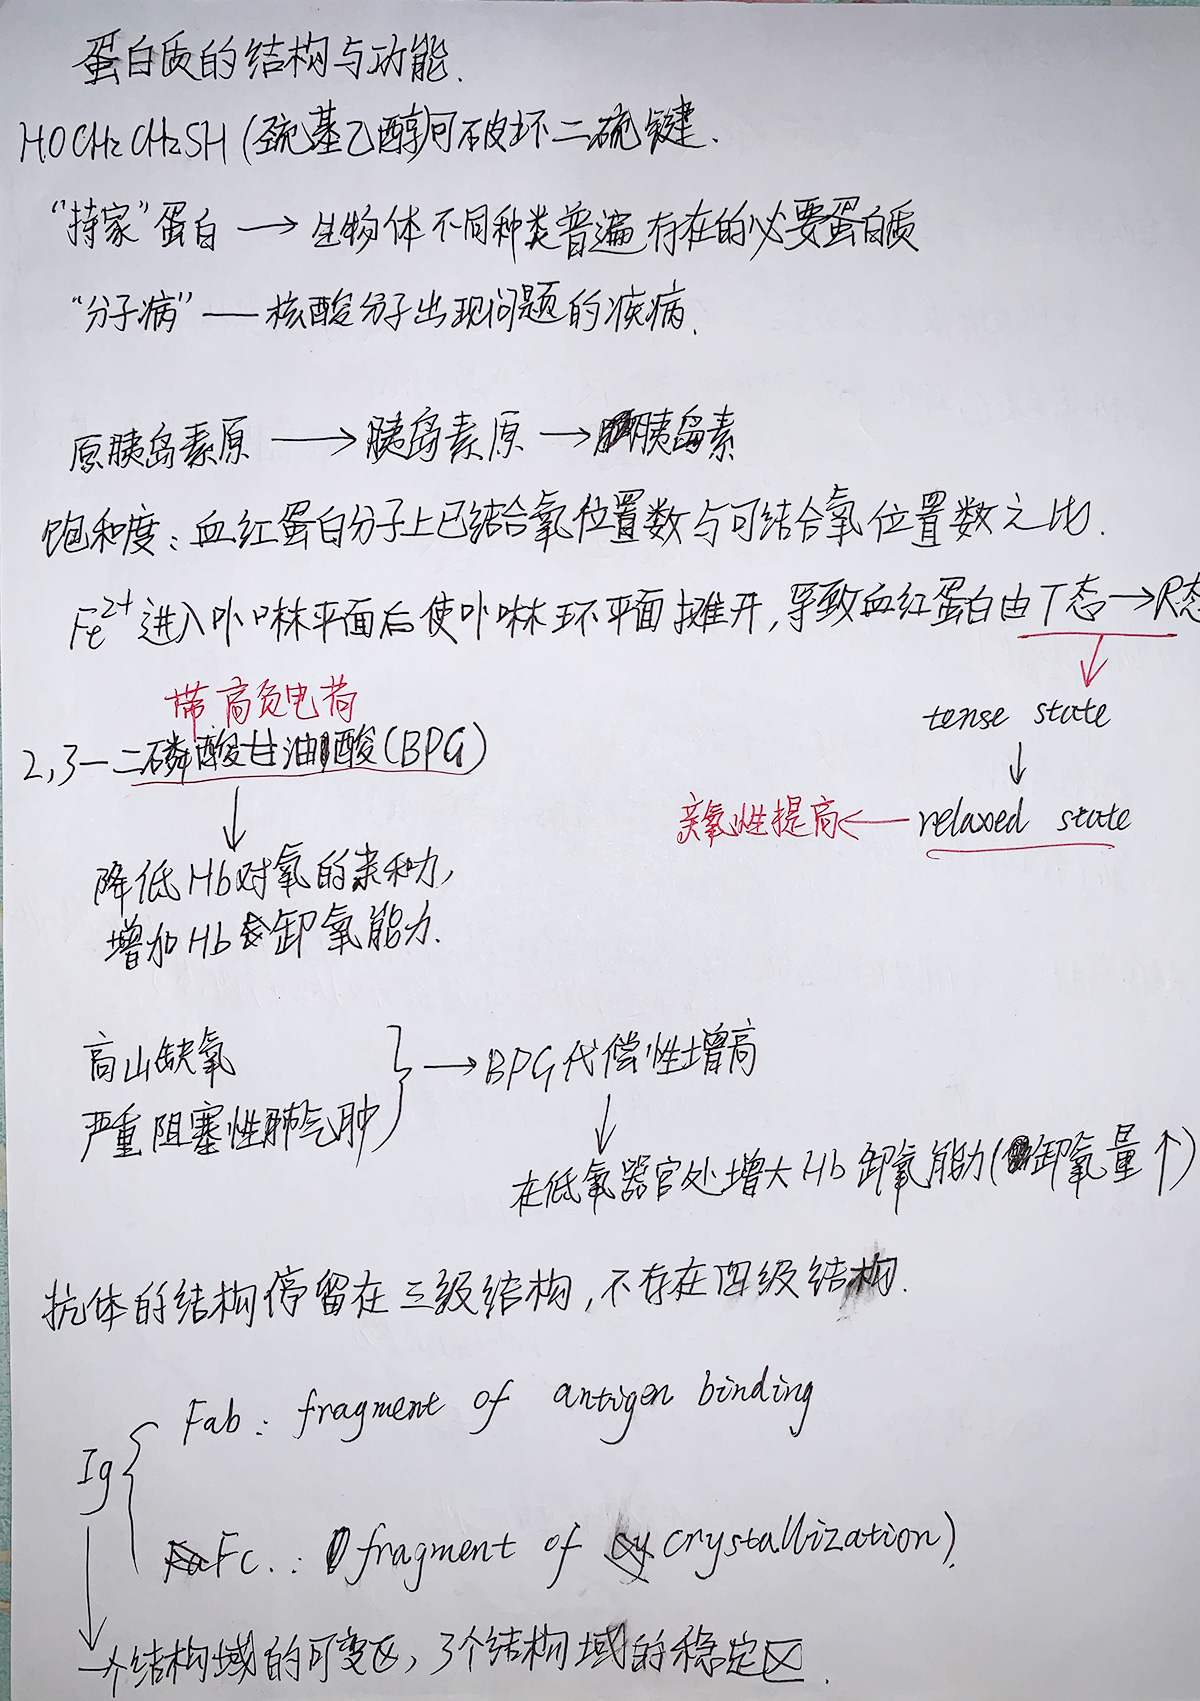 蛋白质的结构与功能.
HOCH₂CH₂SH(巯基乙醇)可破坏二硫键.
"持家"蛋白→生物体不同种类普遍存在的必要蛋白质
"分子病"——核酸分子出现问题的疾病.
原胰岛素原→胰岛素原→胰岛素
饱和度:血红蛋白分子上已结合氧位置数与可结合氧位置数之比.
Fe²⁺进入卟啉平面后使卟啉环平面摊开,导致血红蛋白由T态→R态
tense state
↓
亲氧性提高←relaxed state
带高负电荷
2,3-二磷酸甘油酸(BPG)
↓
降低Hb对氧的亲和力,
增加Hb卸氧能力.
高山缺氧
严重阻塞性肺气肿
}→BPG代偿性增高
↓
在低氧器官处增大Hb卸氧能力(卸氧量↑)
抗体的结构停留在三级结构,不存在四级结构.
Fab: fragment of antigen binding
Ig{
Fc.: fragment of crystallization).
一个结构域的可变区, 3个结构域的稳定区.